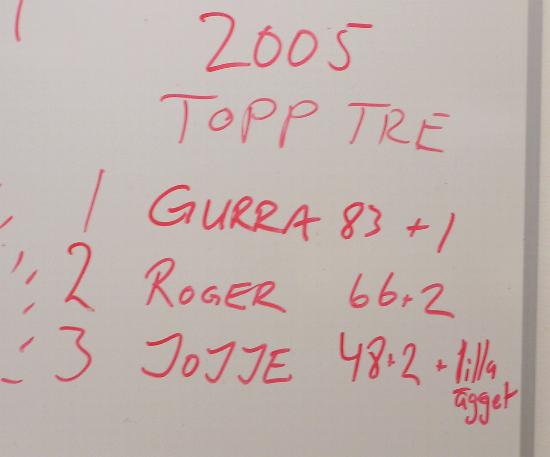 2005
TOPP TRE
1 GURRA 83 + 1
2 ROGER 66+2
3 JOJJE 48+2 + lilla
ägget